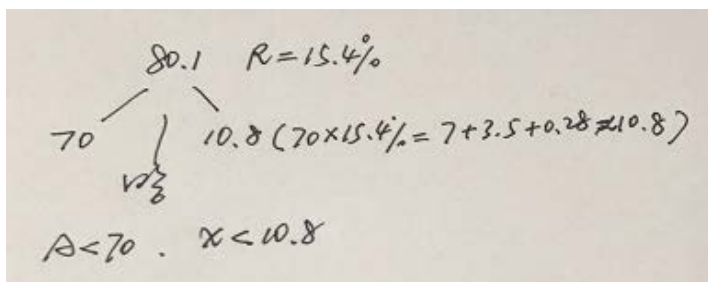 80.1 R=15.4%
70 10.8(70×15.4%=7+3.5+0.28≈10.8)
A<70. x<10.8